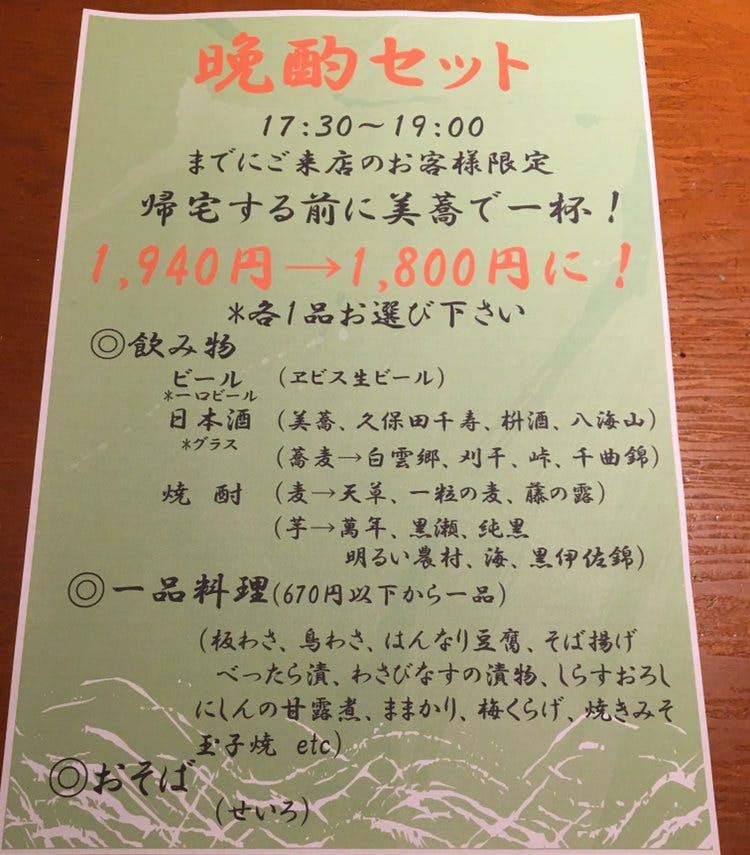 晩酌セット
17:30～19:00
までにご来店のお客様限定
帰宅する前に美蕎で一杯！
1,940円→1,800円に！
*各1品お選び下さい
◎飲み物
ビール （ヱビス生ビール）
*一口ビール
日本酒 （美蕎、久保田千寿、枡酒、八海山）
*グラス
（蕎麦→白雲郷、刈干、峠、千曲錦）
焼酎 （麦→天草、一粒の麦、藤の露）
（芋→萬年、黒瀬、純黒
明るい農村、海、黒伊佐錦）
◎一品料理（670円以下から一品）
（板わさ、鳥わさ、はんなり豆腐、そば揚げ
べったら漬、わさびなすの漬物、しらすおろし
にしんの甘露煮、ままかり、梅くらげ、焼きみそ
玉子焼 etc）
◎おそば
（せいろ）